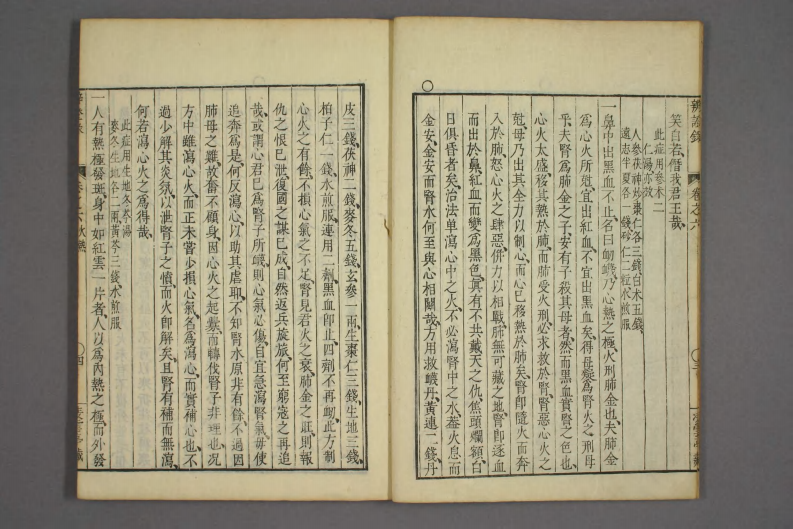 辨證錄 卷之六
笑自若僭我君王哉
此症用參朮二
仁湯亦效
人參茯神炒棗仁各三錢白朮五錢
遠志半夏各一錢砂仁二粒水煎服
一鼻中出黑血不止名曰衄衊乃心熱之極火刑肺金也夫肺金
為心火所尅宜出紅血不宜出黑血矣得毋疑為腎火之刑母
乎夫腎為肺金之子安有子殺其母者然而黑血實腎之色也
心火太盛移其熱於肺而肺受火刑必求救於腎腎惡心火之
尅母乃出其全力以制心而心已移熱於肺矣腎即隨火而奔
入於肺怒心火之肆惡併力以相戰肺無可藏之地腎即逐血
而出於鼻紅血而變為黑色眞有不共戴天之仇焦頭爛額白
日俱昏者矣治法单瀉心中之火不必瀉腎中之水蓋火息而
金安金安而腎水何至與心相鬬哉方用救衊丹黃連二錢丹
皮三錢茯神二錢麥冬五錢玄參一兩生棗仁三錢生地三錢
柏子仁一錢水煎服連用二劑黑血即止四劑不再衂此方制
心火之有餘不損心氣之不足腎見君火之衰肺金之旺則報
仇之恨已泄復國之謀已成自然返兵旋旅何至窮寇之再追
哉或謂心君已為腎子所衊則心氣必傷自宜急瀉腎氣毋使
追奔為是何反瀉心以助其虐耶不知腎水原非有餘不過因
肺母之難故奮不顧身因心火之起釁而轉伐腎子非理也况
方中雖瀉心火而正未嘗少損心氣名為瀉心而實補心也不
過少解其炎氛以泄腎子之憤而火即解矣且腎有補而無瀉
何若瀉心火之為得哉
此症用生地冬芩湯
麥冬生地各二兩黃芩三錢水煎服
一人有熱極發斑身中如紅雲一片者人以為內熱之極而外發